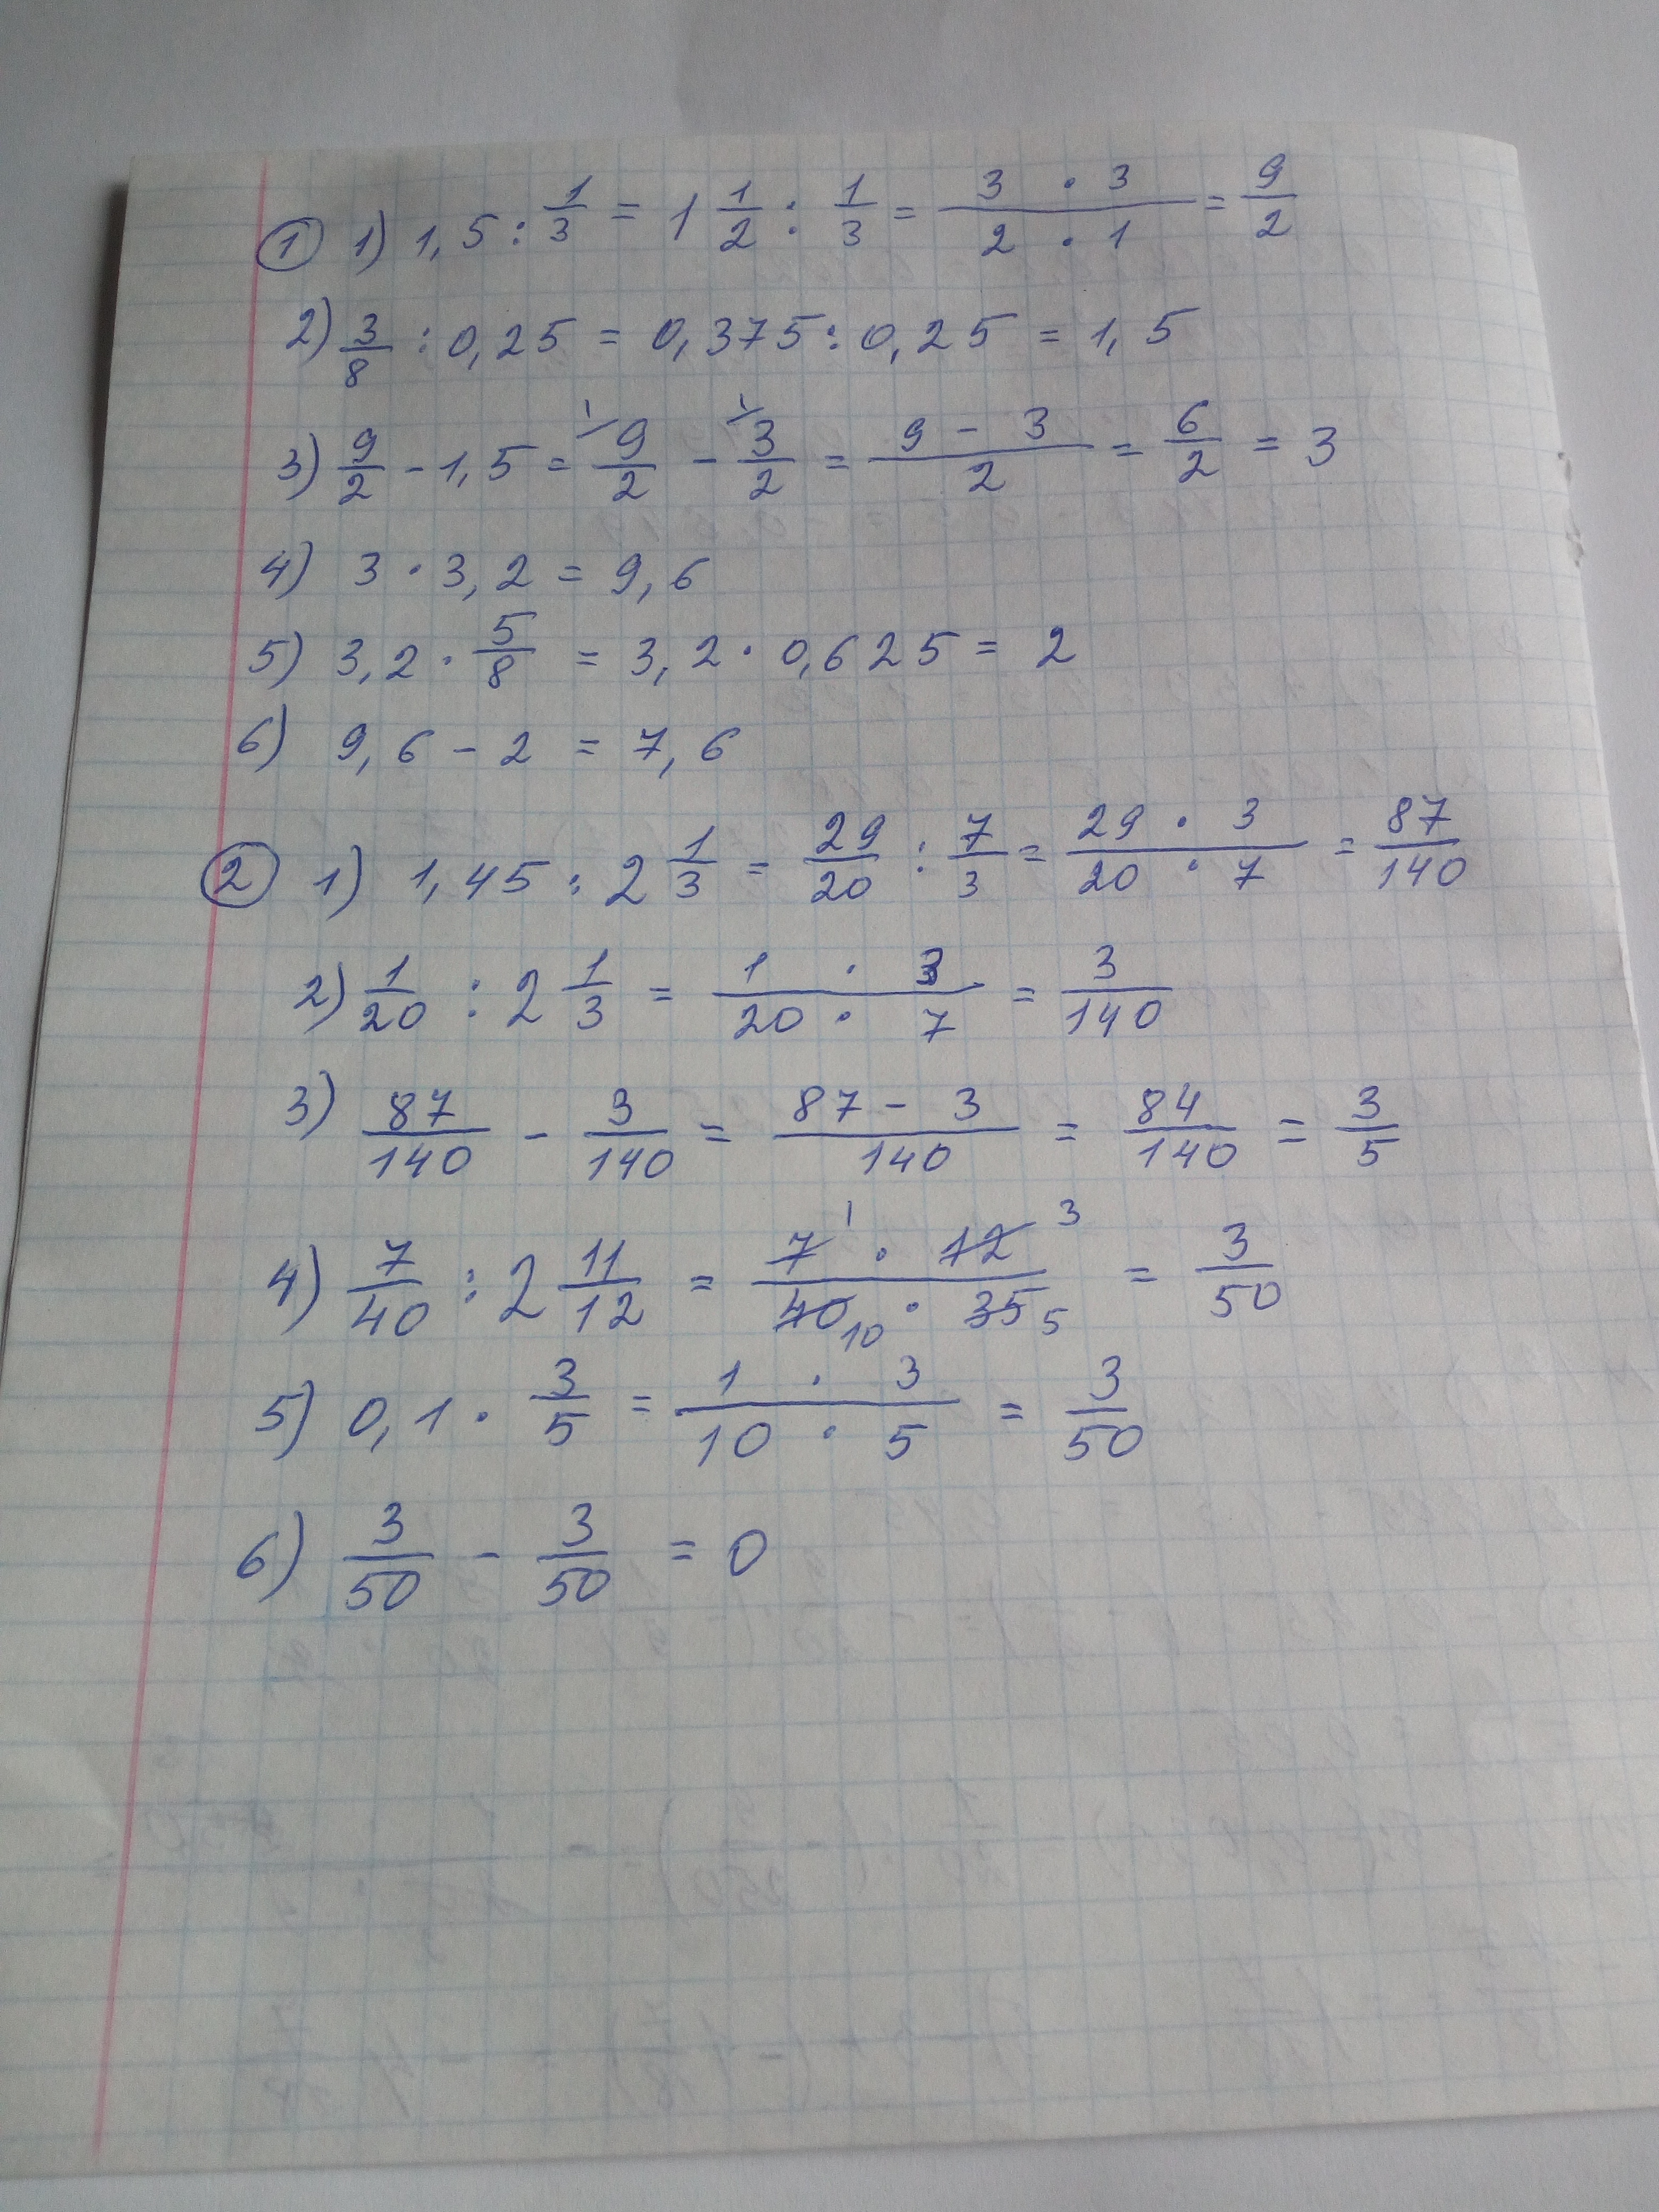 ① 1) 1,5 : 1/3 = 1 1/2 : 1/3 = (3 · 3)/(2 · 1) = 9/2
2) 3/8 : 0,25 = 0,375 : 0,25 = 1,5
3) 9/2 - 1,5 = ¹⁄ 9/2 - ¹⁄ 3/2 = (9 - 3)/2 = 6/2 = 3
4) 3 · 3,2 = 9,6
5) 3,2 · 5/8 = 3,2 · 0,625 = 2
6) 9,6 - 2 = 7,6
② 1) 1,45 : 2 1/3 = 29/20 : 7/3 = (29 · 3)/(20 · 7) = 87/140
2) 1/20 : 2 1/3 = (1 · 3)/(20 · 7) = 3/140
3) 87/140 - 3/140 = (87 - 3)/140 = 84/140 = 3/5
4) 7/40 : 2 11/12 = (7 ¹ · 12 ³)/(40 ₁₀ · 35 ₅) = 3/50
5) 0,1 · 3/5 = (1 · 3)/(10 · 5) = 3/50
6) 3/50 - 3/50 = 0